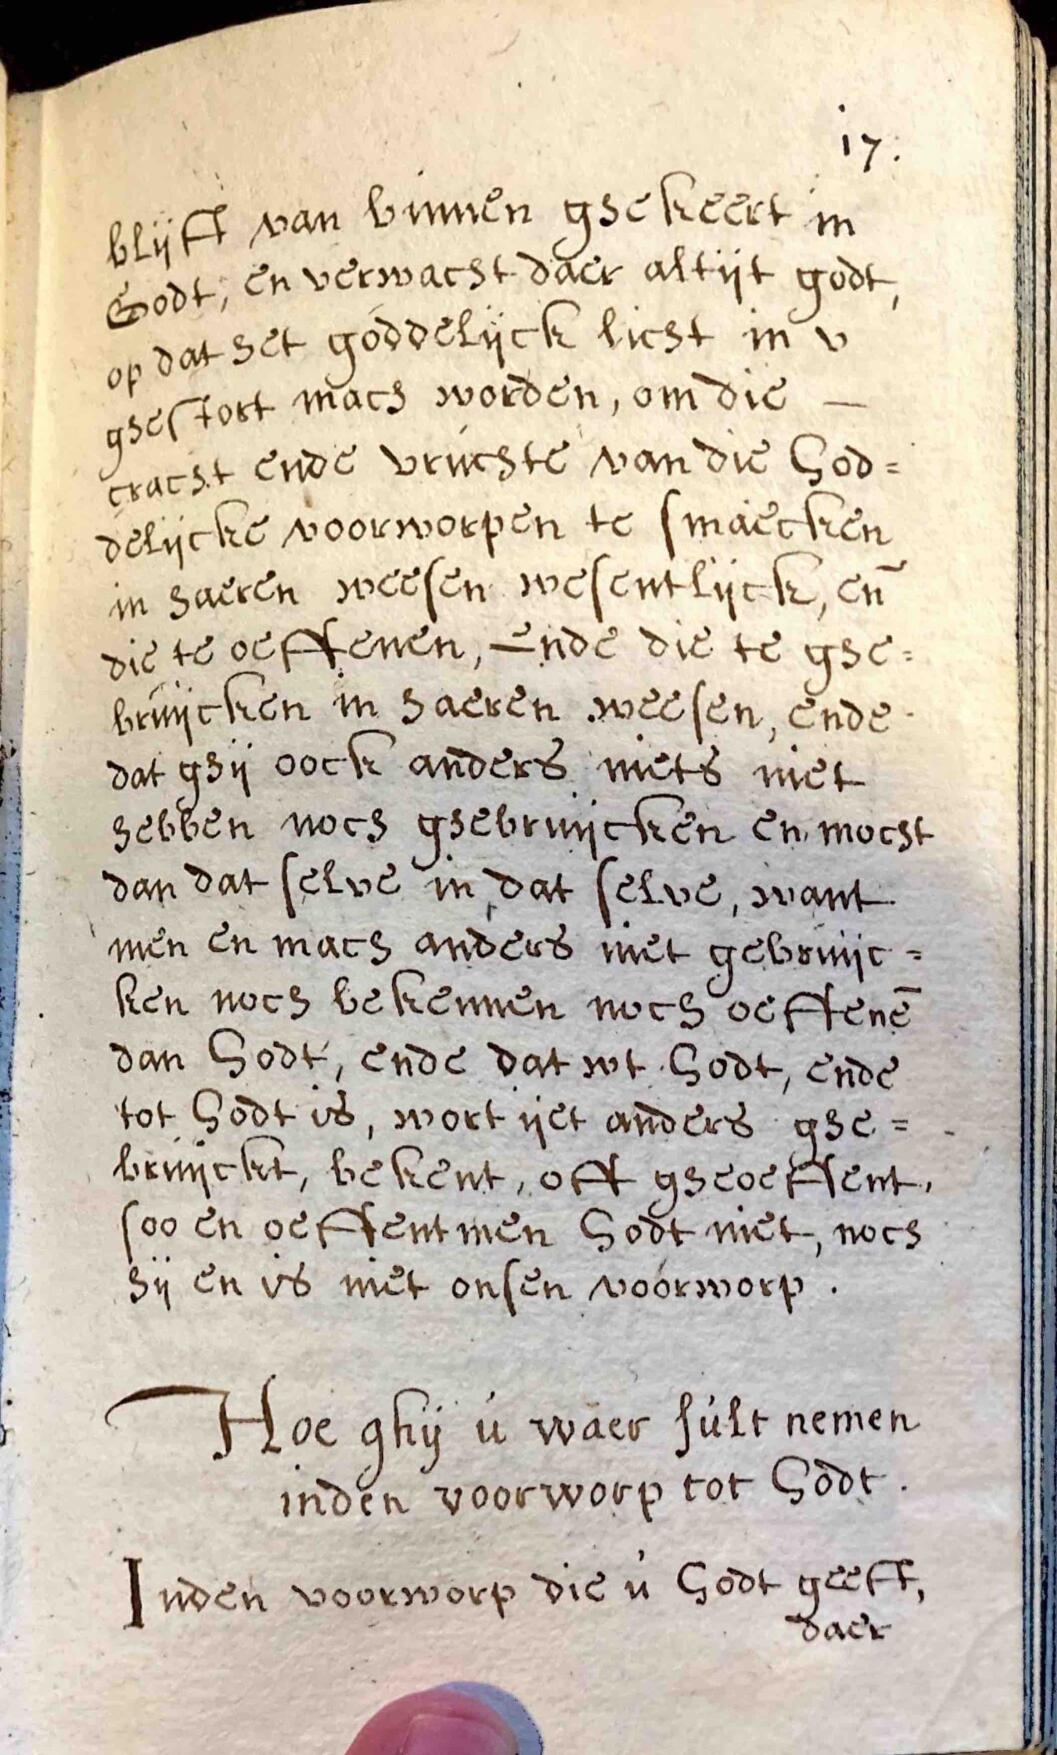 17.
blijft van binnen ghekeert in
Godt, en verwacht daer altijt godt,
op dat het goddelijck licht in v
ghestort mach worden, om die —
cracht ende vruchte van die God=
delijcke voorworpen te smaecken
in haeren weesen wesentlijck, en̄
die te oeffenen, Ende die te ghe=
bruijcken in haeren weesen, ende
dat ghij oock anders niets niet
hebben noch ghebruijcken en mocht
dan dat selve in dat selve, want
men en mach anders niet gebruijc=
ken noch bekennen noch oeffenē
dan Godt, ende dat wt Godt, ende
tot Godt is, wort ijet anders ghe=
bruijckt, bekent, oft gheoeffent,
soo en oeffent men Godt niet, noch
hij en is niet onsen voorworp.
Hoe ghij ú waer súlt nemen
inden voorworp tot Godt.
Inden voorworp die ú Godt geeft,
daer